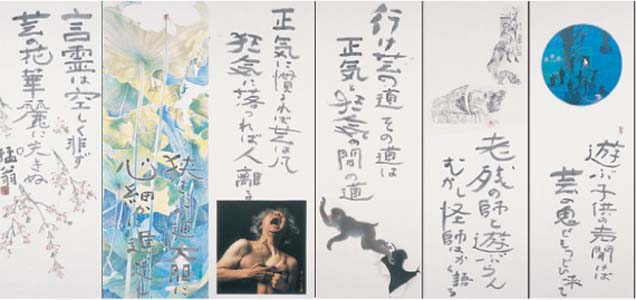 遊ぶ子供の聞は
芸の鬼どもつどひ来て
老残の師と遊ぶらん
むかし怪師はかく語る
行は芸の道その道は
正気と狂気の間の道
正気に慣れば芸はて
狂気に落つれば人離る
狭き道大胆に
心細かに進
言霊は空しく非ず
芸の花華麗に大きぬ
猛翁